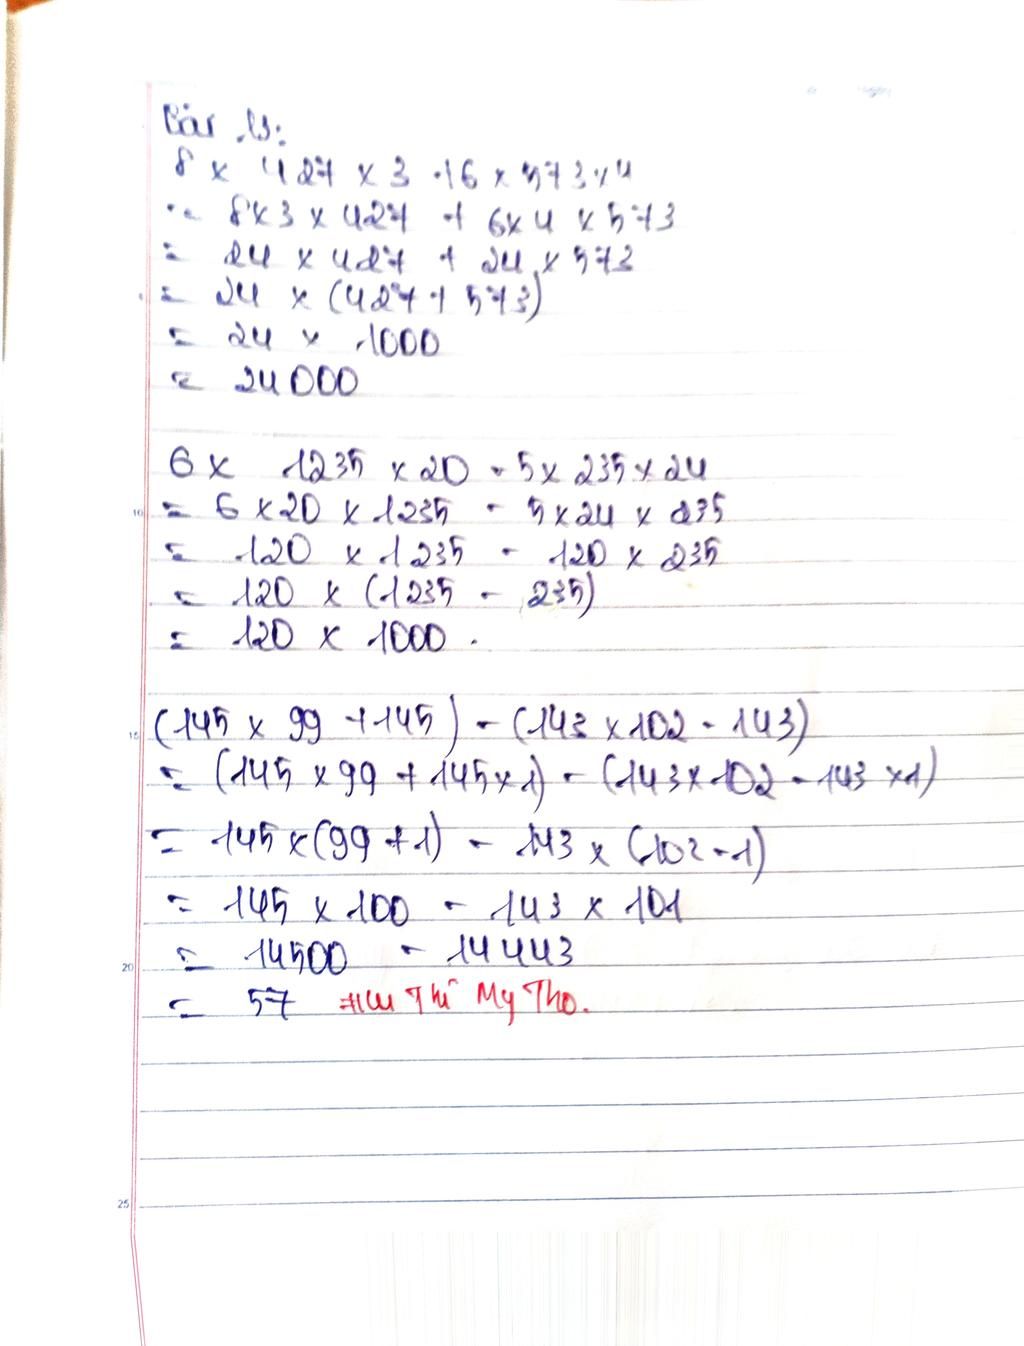 Bài 13:
8 x 427 x 3 + 6 x 573 x 4
= 8 x 3 x 427 + 6 x 4 x 573
= 24 x 427 + 24 x 573
= 24 x (427 + 573)
= 24 x 1000
= 24000
6 x 1235 x 20 - 5 x 235 x 24
= 6 x 20 x 1235 - 5 x 24 x 235
= 120 x 1235 - 120 x 235
= 120 x (1235 - 235)
= 120 x 1000.
(145 x 99 + 145) - (143 x 102 - 143)
= (145 x 99 + 145 x 1) - (143 x 102 - 143 x 1)
= 145 x (99 + 1) - 143 x (102 - 1)
= 145 x 100 - 143 x 101
= 14500 - 14443
= 57 Thị My Tho.
10
15
20
25